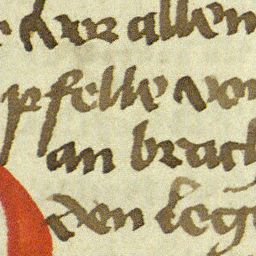 der allen
pfelle von
an brach
den leg